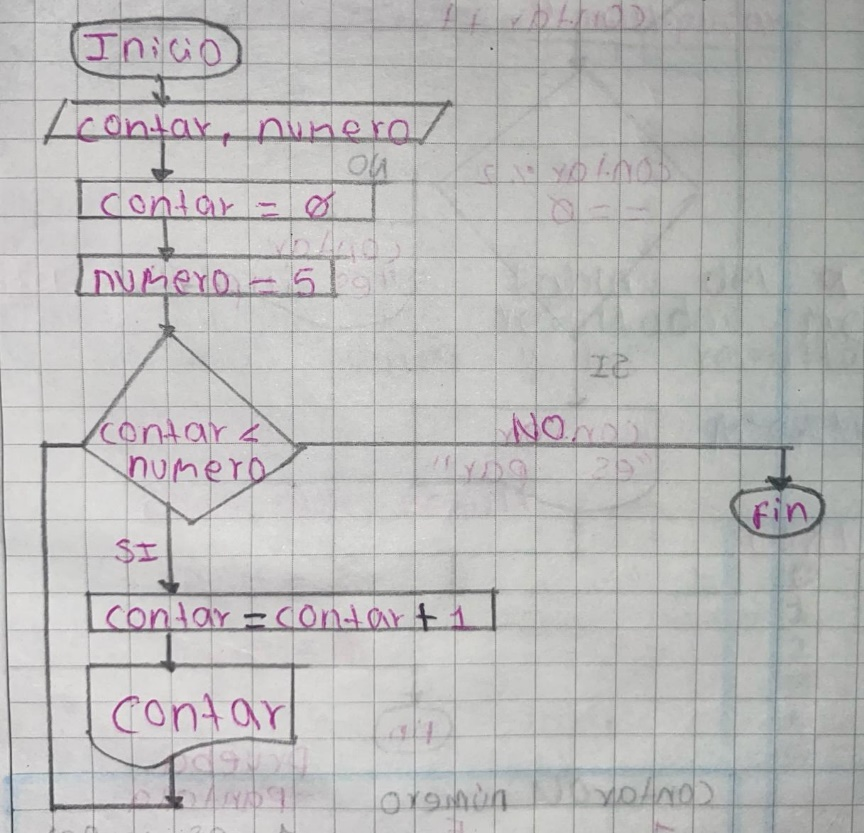 Inicio
contar, numero
contar = 0
numero = 5
contar <
numero
NO
Fin
SI
contar = contar + 1
contar